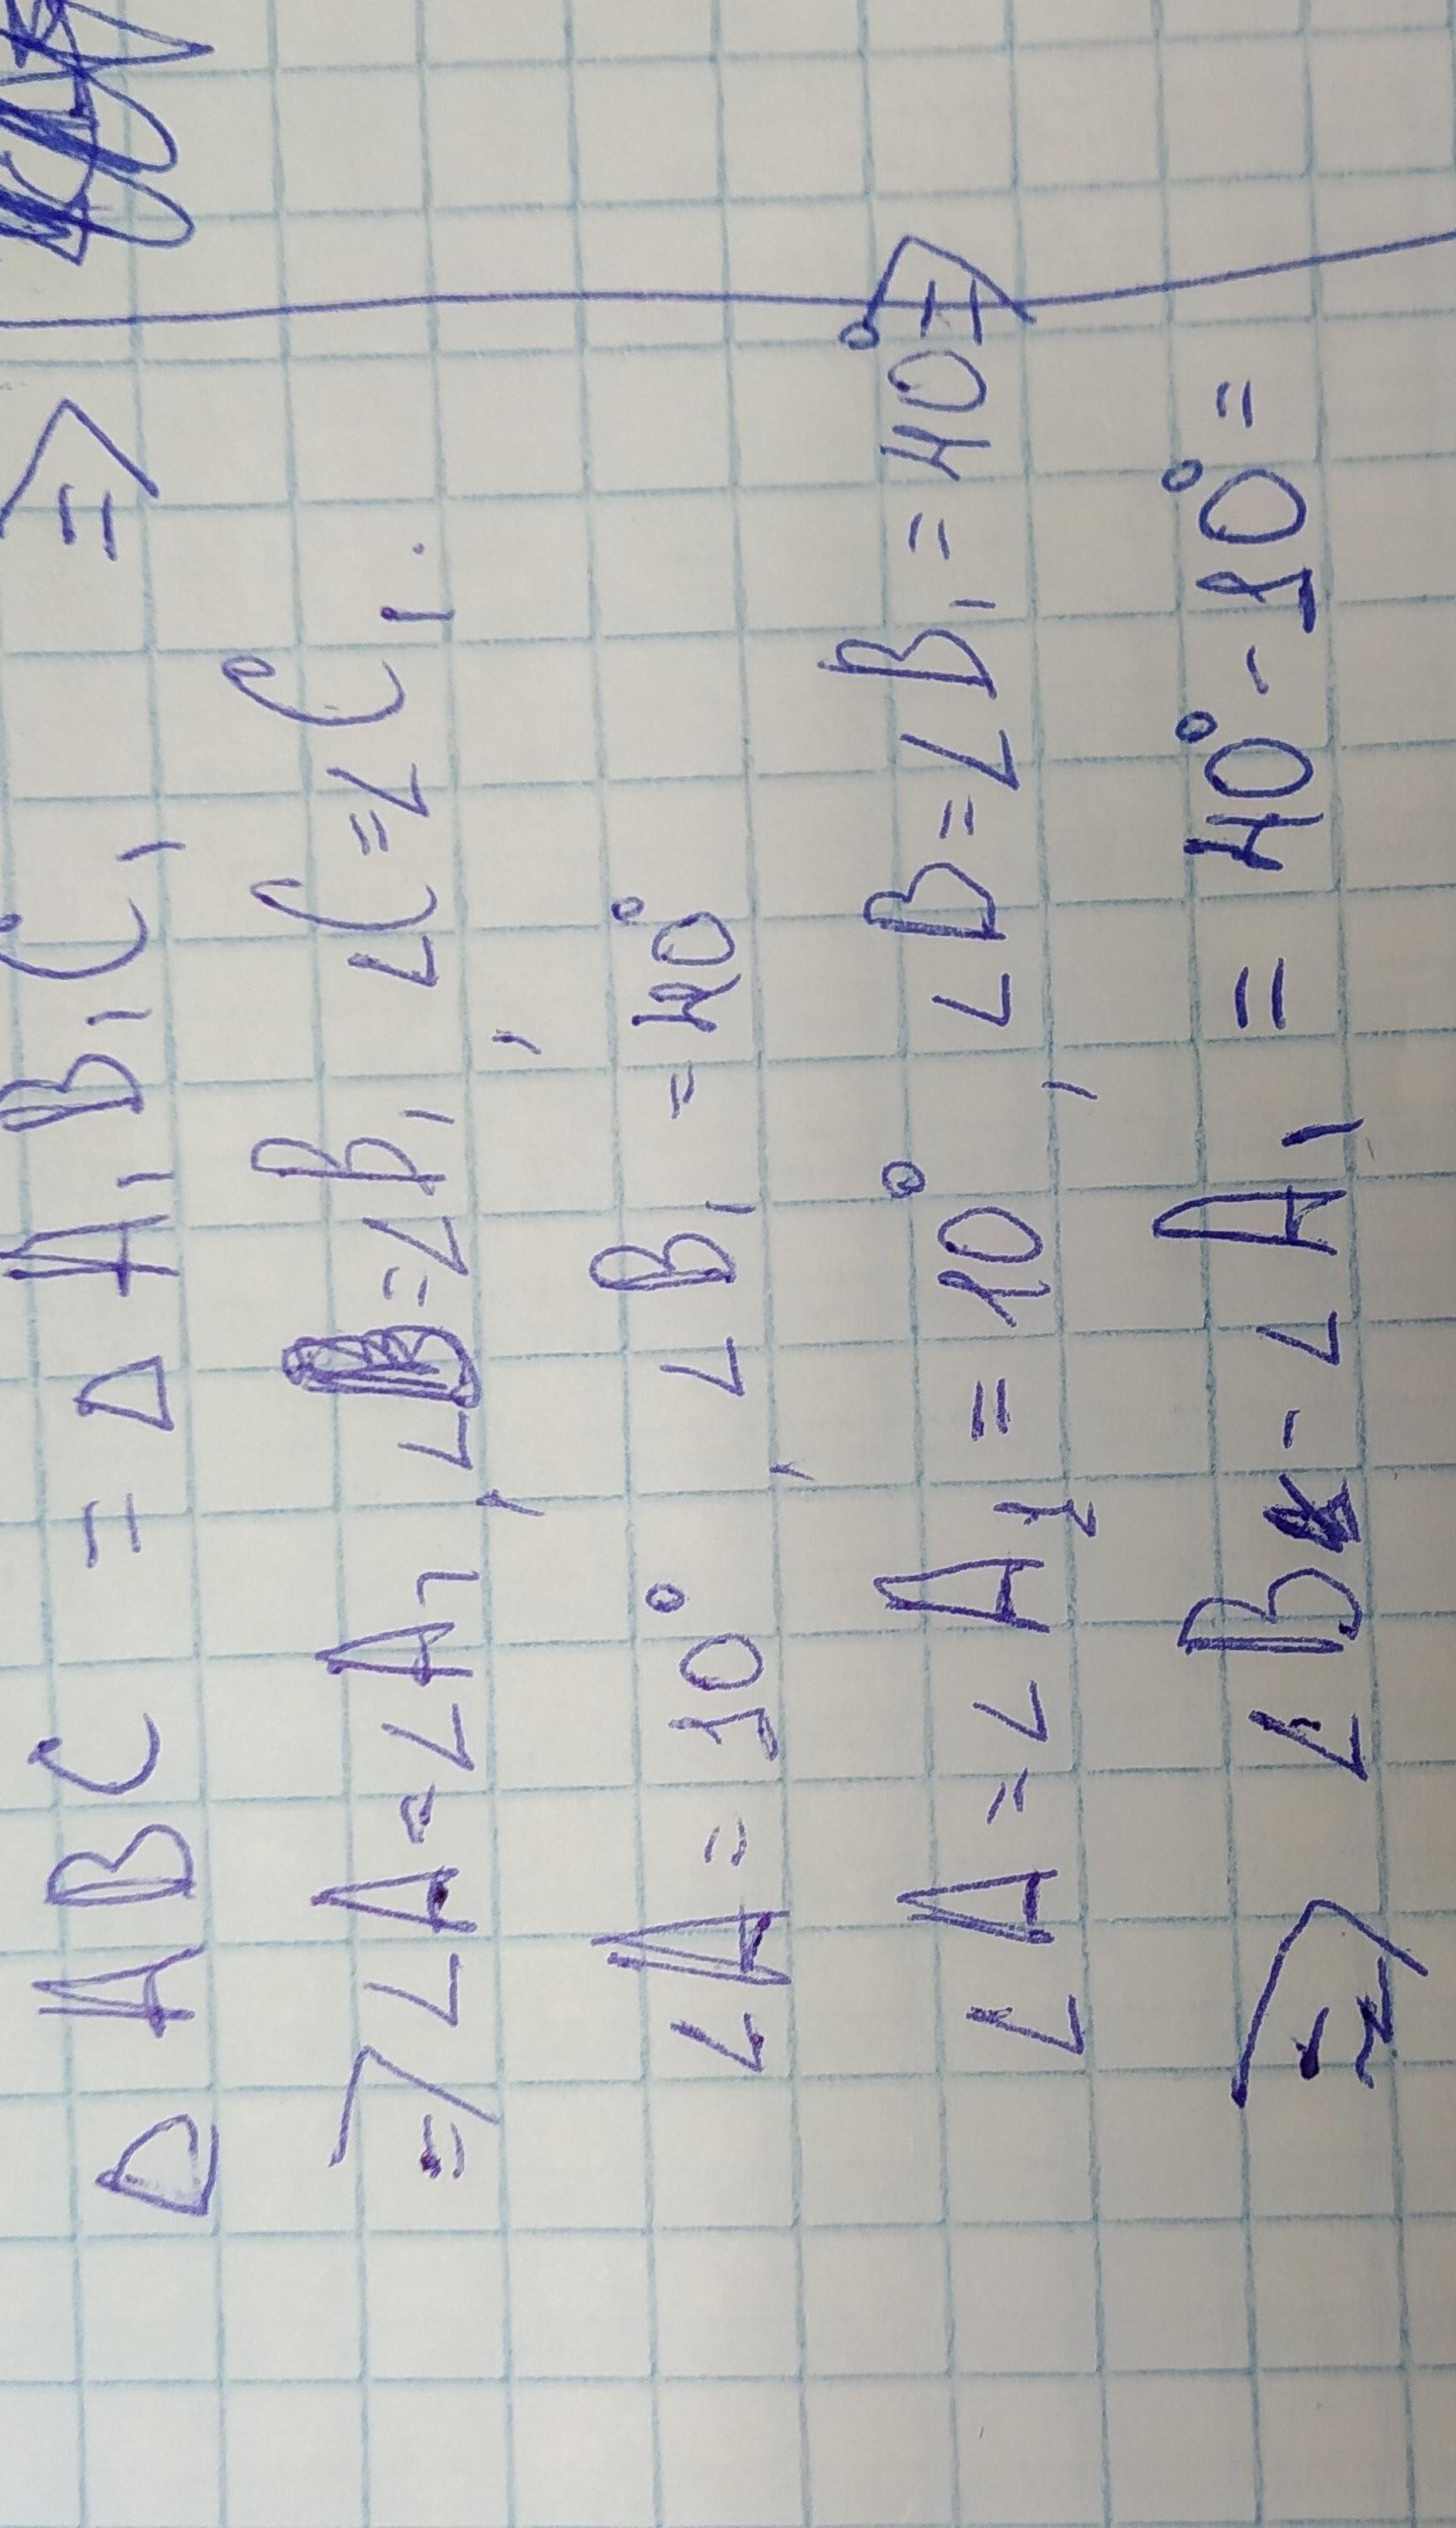 Δ ABC = Δ A₁B₁C₁ =>
=> ∠A = ∠A₁, ∠B = ∠B₁, ∠C = ∠C₁.
∠A = 10°, ∠B₁ = 40°
∠A = ∠A₁ = 10°, ∠B = ∠B₁ = 40° =>
=> ∠B - ∠A₁ = 40° - 10° =